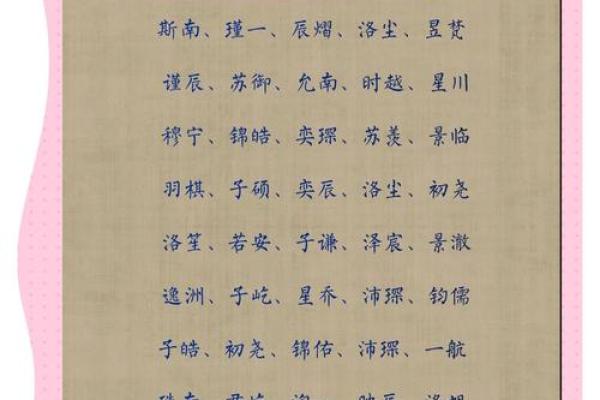 斯南、瑾一、辰熠、洛尘、昱梵
谨辰、苏御、允南、时越、星川
穆宁、锦皓、奕琛、苏羡、景临
羽棋、子硕、奕辰、洛尘、初尧
洛笙、若安、子谦、泽宸、景澈
逸洲、子屹、星乔、沛琛、钧儒
子皓、初尧、锦佑、沛琛、一航